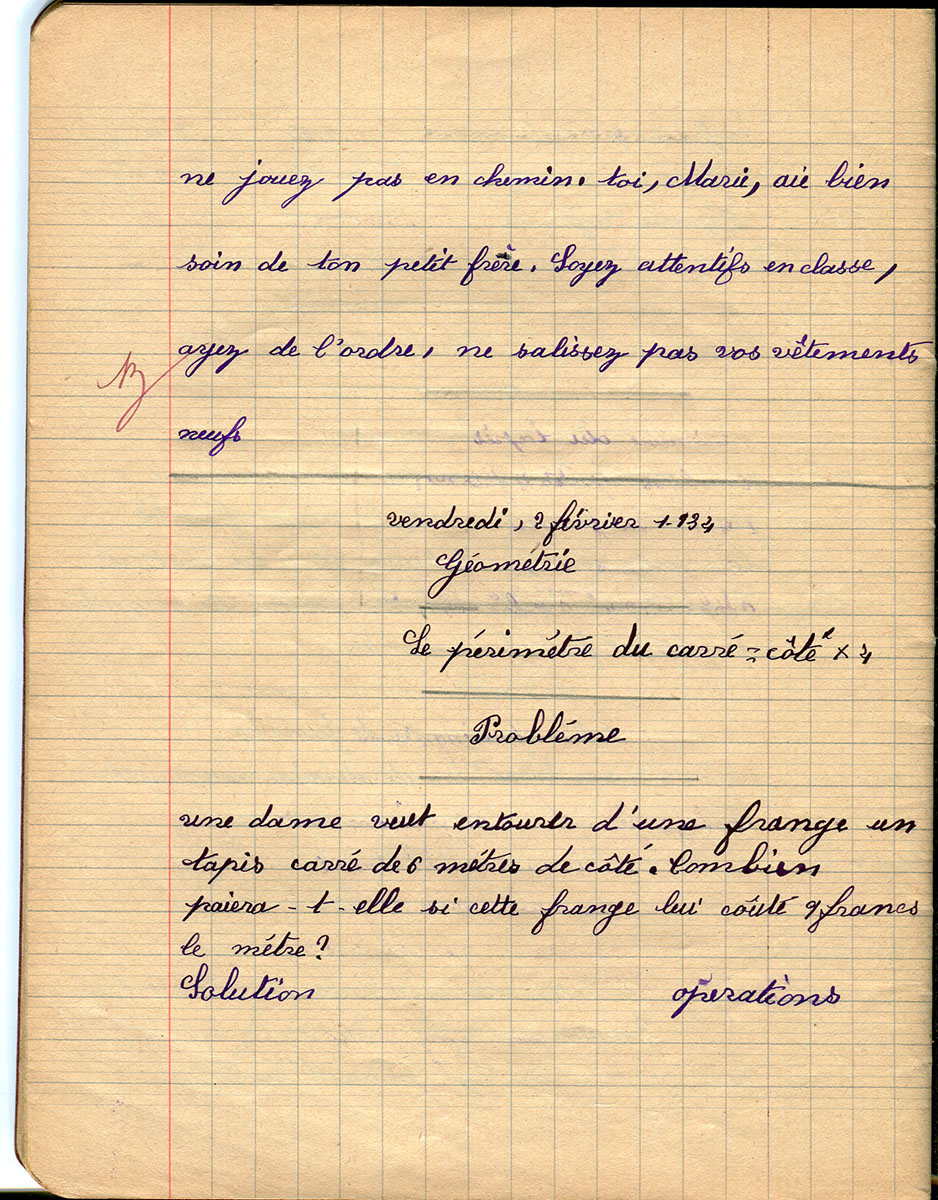 ne jouez pas en chemin. toi, Marie, aie bien
soin de ton petit frère. Soyez attentifs en classe,
ayez de l'ordre, ne salissez pas vos vêtements
neufs
vendredi, 2 février 1934
Géométrie
Le périmétre du carré = côté x 4
Probléme
une dame veut entourer d'une frange un
tapis carré de 6 métres de côté. Combien
paiera-t-elle si cette frange lui coûté 9 francs
le métre?
Solution operations